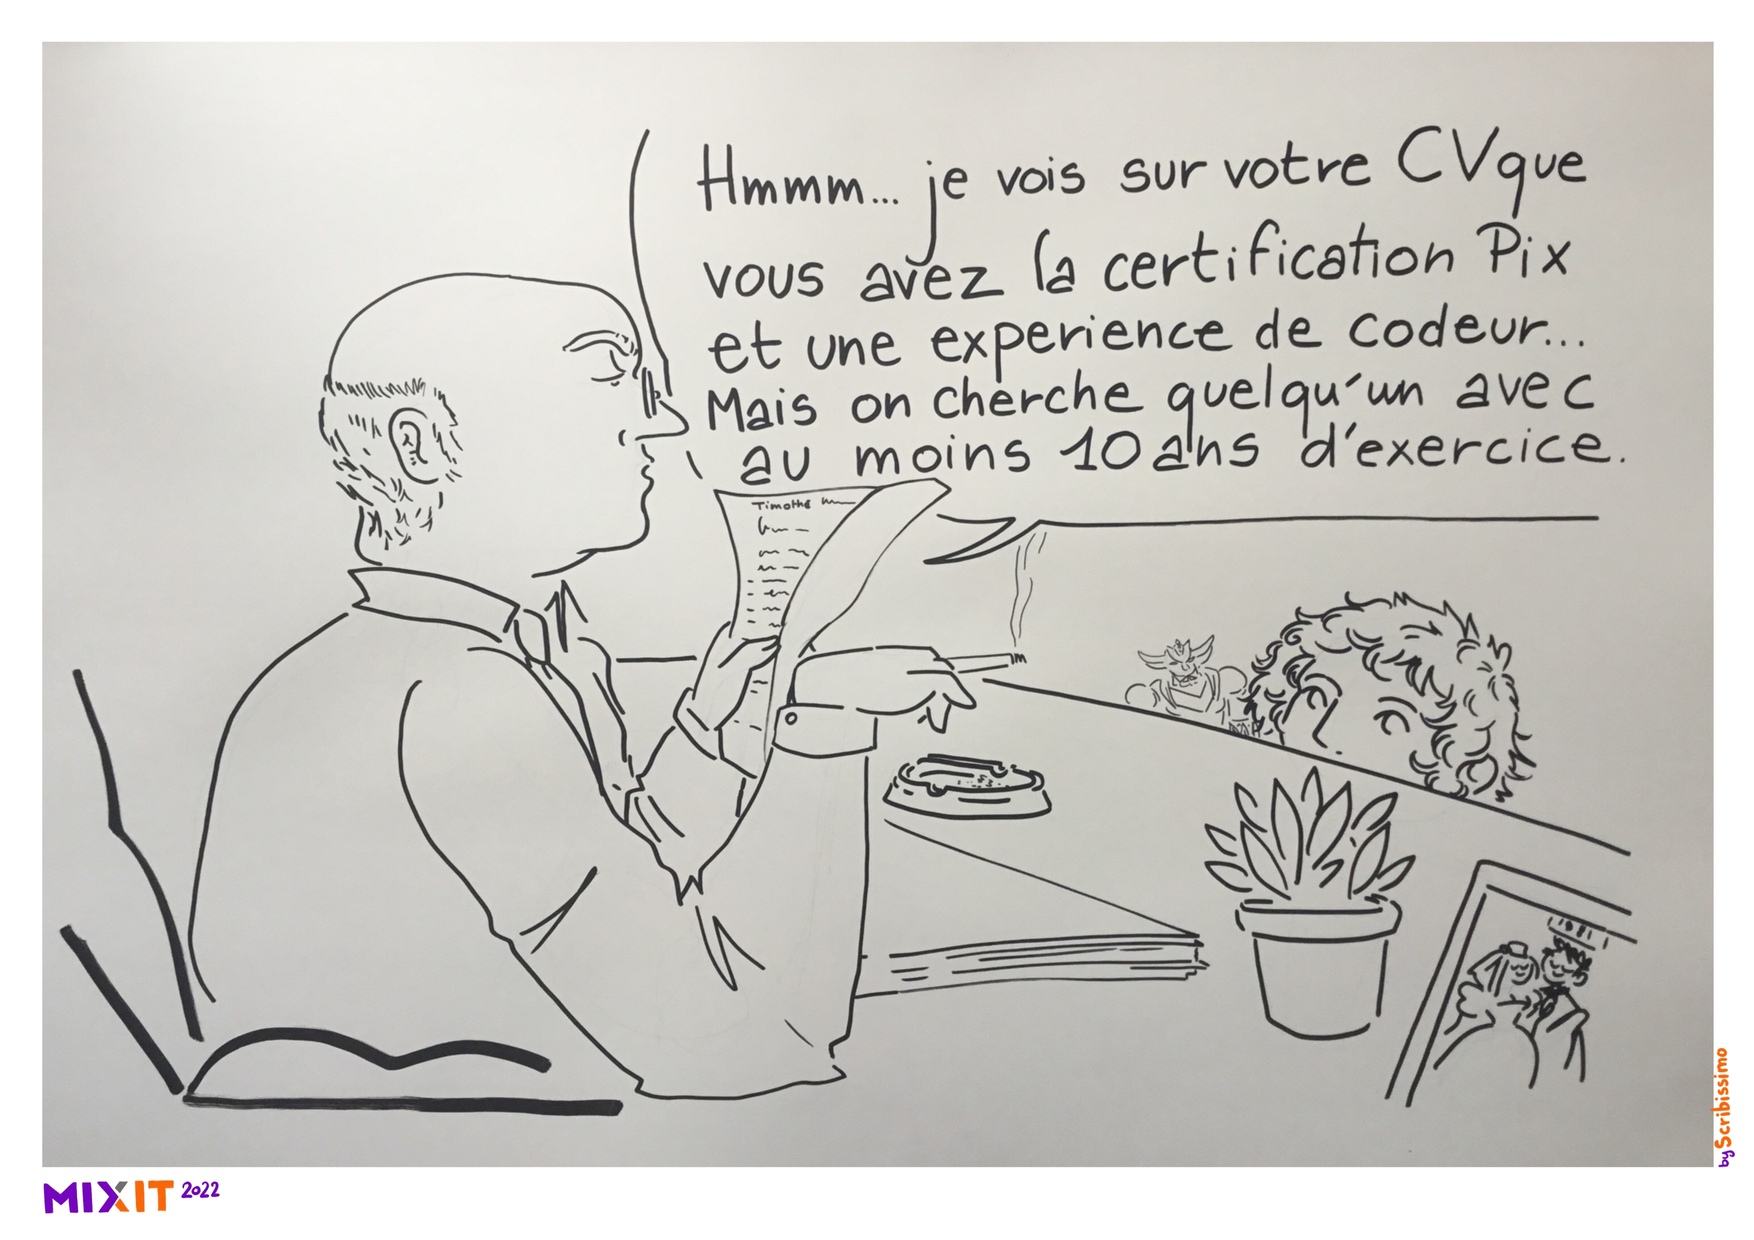 Hmmm... je vois sur votre CV que
vous avez la certification Pix
et une experience de codeur...
Mais on cherche quelqu'un avec
au moins 10 ans d'exercice.
Timothé
by Scribissimo
MIXIT 2022